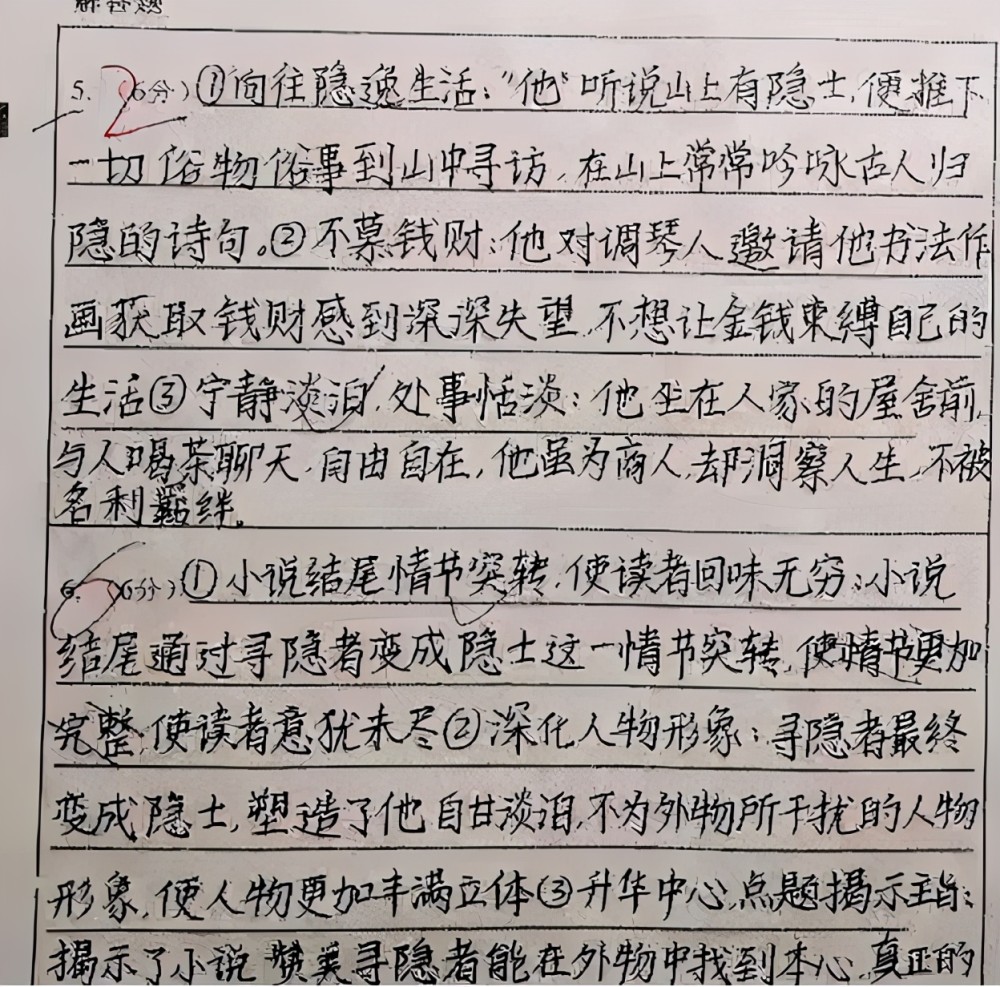 解答题
5. 2 (6分)①向往隐逸生活:"他"听说山上有隐士,便推下
一切俗物俗事到山中寻访,在山上常常吟咏古人归
隐的诗句。②不慕钱财:他对调琴人邀请他书法作
画获取钱财感到深深失望,不想让金钱束缚自己的
生活③宁静淡泊,处事恬淡:他坐在人家的屋舍前,
与人喝茶聊天,自由自在,他虽为商人,却洞察人生,不被
名利羁绊。
6. (6分)①小说结尾情节突转,使读者回味无穷:小说
结尾通过寻隐者变成隐士这一情节突转,使情节更加
完整,使读者意犹未尽②深化人物形象:寻隐者最终
变成隐士,塑造了他自甘淡泊,不为外物所干扰的人物
形象,使人物更加丰满立体③升华中心,点题揭示主旨:
揭示了小说赞美寻隐者能在外物中找到本心,真正的